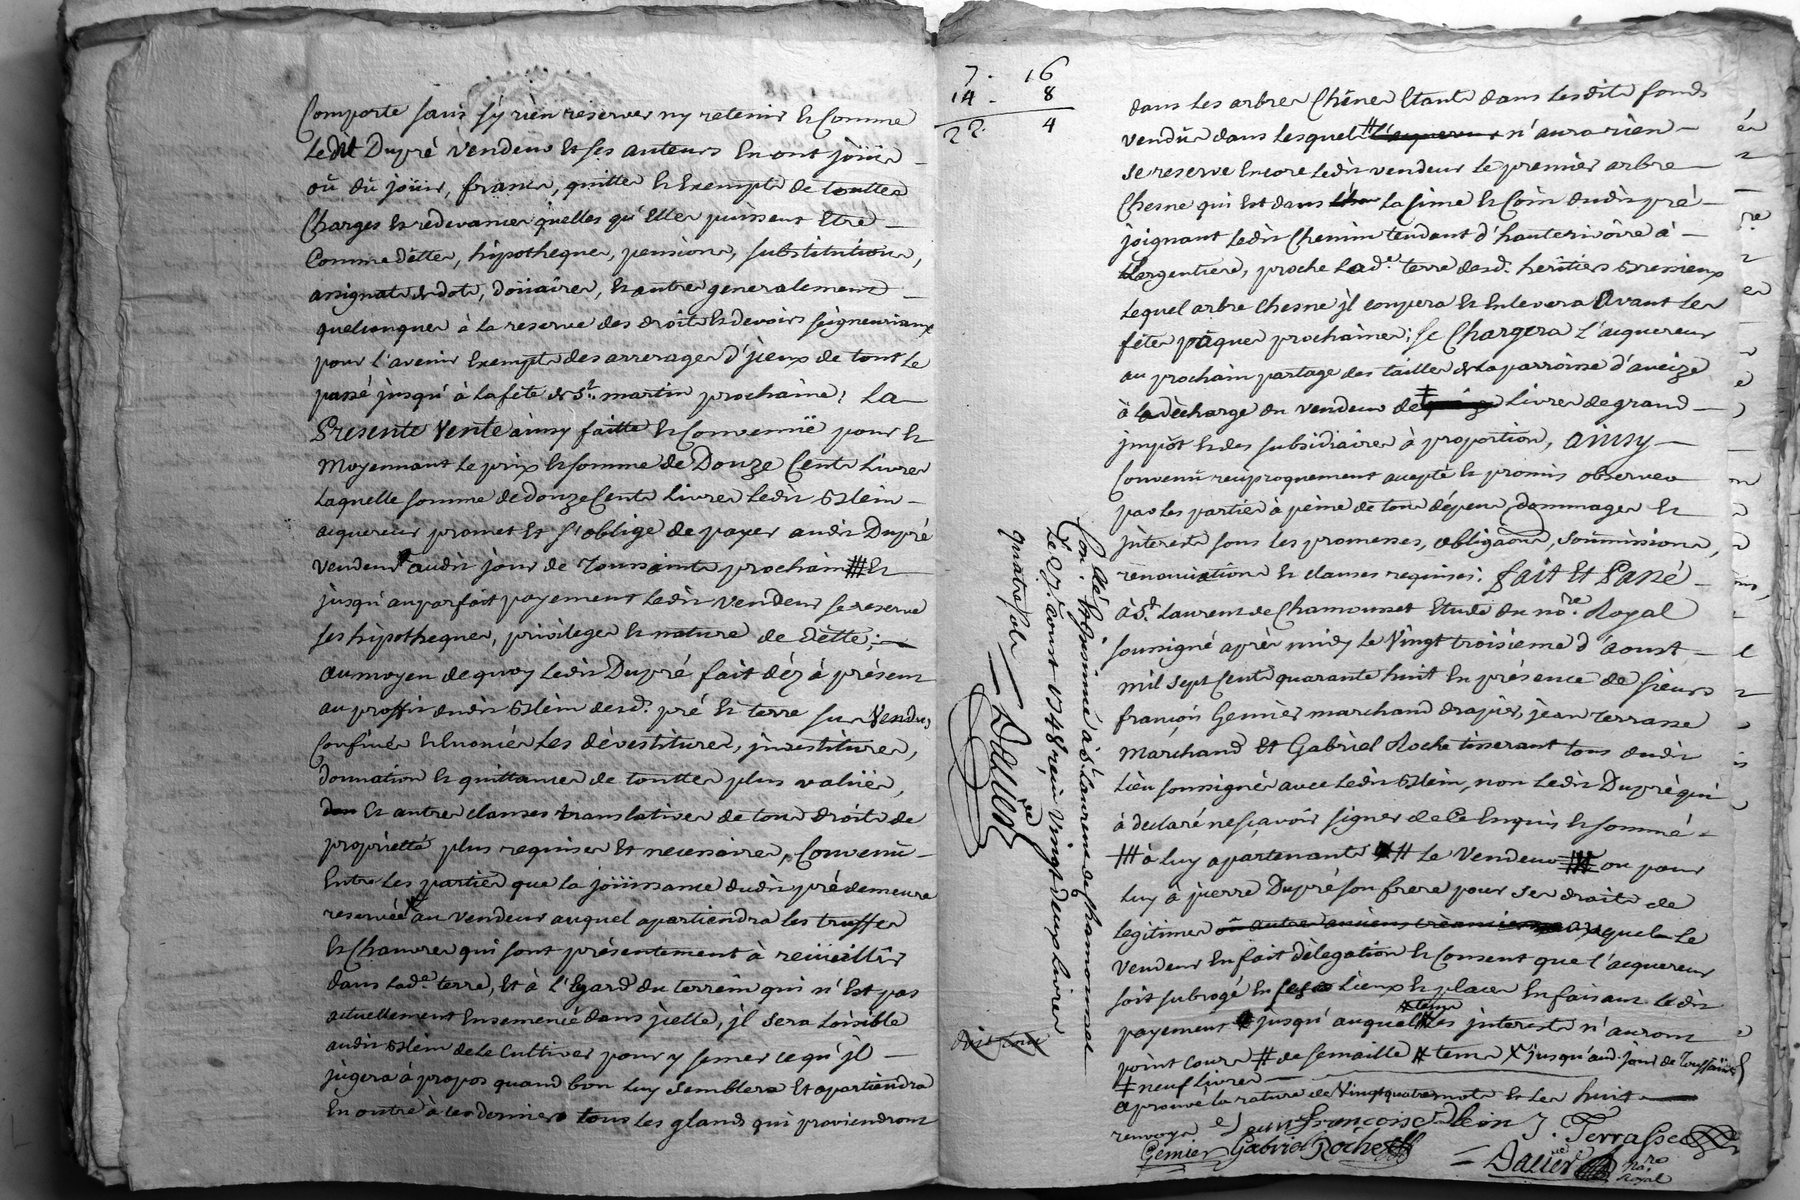 Comporte sans s'y rien reserver ny retenir et Comme
Ledit Dupré vendeur et ses auteurs en ont joüir
où dû joüir, francs, quitte et Exempts de touttes
Charges et redevances quelles qu'Elles puissent Etre
Comme dettes, hipotheques, pensions, substitutions,
assignats de dots, doüaires, et autres generalement
quelconques à la reserve des droits et devoirs seigneuriaux
pour l'avenir Exempts des arrerages d'jceux de tout le
passé jusqu'à la fête de St. martin prochaine; La
Presente Vente ainsy faitte et Convenüe pour et
Moyennant le prix et somme de Douze Cents Livres
Laquelle somme de douze Cents Livres ledit
acquereur promet et s'oblige de payer audit Dupré
vendeur audit jour de Toussaints prochain # et
jusqu'au parfait payement ledit vendeur se reserve
ses hipotheques, privileges et nature de dette;
au moyen de quoy ledit Dupré fait dèz à présent
au proffit dudit desd. pré et terre sus Vendus
Confinés et Enoncés les dévestitures, jnvestitures,
donnation et quittances de touttes plus valües,
et autres clauses translatives de tous droits de
proprietté plus requises et necessaires, Convenü
Entre les parties que la joüissance dudit pré demeure
reservée au vendeur auquel apartiendra les truffes
et Chanvres qui sont présentement à recüeillir
dans lade. terre, et à l'Egard du terrein qui n'Est pas
actuellement Ensemencé dans jcelle, jl sera loisible
audit de le Cultiver pour y semer ce qu'jl
jugera à propos quand bon luy semblera Et apartiendra
En outre à ce dernier tous les glands qui proviendront
7. 16
14. 8
22. 4
dans les arbres Chênes Etants dans lesdits fonds
vendus dans lesquel # n'aura rien
se reserve Encore ledit vendeur le premier arbre
Chesne qui Est dans la sime et Coin dudit pré
joignant ledit Chemin tendant d'hauterivoire à
Largentiere, proche lade. terre desd. heritiers
Lequel arbre Chesne jl coupera et Enlevera avant les
fêtes pâques prochaines; se Chargera l'acquereur
au prochain partage des tailles de la parroisse d'aveize
à la dècharge du vendeur de livres de grand
jmpôt et des subsidiaires à proportion, ainsy
Convenü reciproquement accepté et promis observer
par les parties à peine de tous dépens, dommages et
jnterests sous les promesses, obligaons, soumissions,
renonciations et clauses requises: fait et Passé
à St. Laurent de Chamousset Etude du nore. Royal
soussigné après midy le vingt troisieme d'aoust
mil sept Cents quarante huit En présence de sieurs
françois Gemier marchand drapier, jean terrasse
Marchand Et Gabriel Roche tisserant tous dudit
Lieu soussignés avec ledit, non ledit Dupré qui
à declaré ne sçavoir signer de Ce Enquis et sommé
# à luy apartenants # le Vendeur # ou pour
Luy à pierre Dupré son frere pour ses droits de
legitimes ou autres anciens créanciers auquel le
vendeur En fait dèlegation et Consent que l'acquereur
soit subrogé En ses Lieux et places En faisant ledit
payement jusqu'auquel tems les jnterests n'auront
point Cours # de semaille # tems X jusqu'aud. jour de Toussaints
neuf Livres
aprouvé la rature de vingt quatre mots et les huit
renvoys
françois J. Terrasse
Gemier Gabriel Roche
Dacier nore. Royal
Con. & Insinué à St. Laurent de Chamousset
Le 27. aoust 1748 reçu vingt deux livres
quatre sols
Dacier